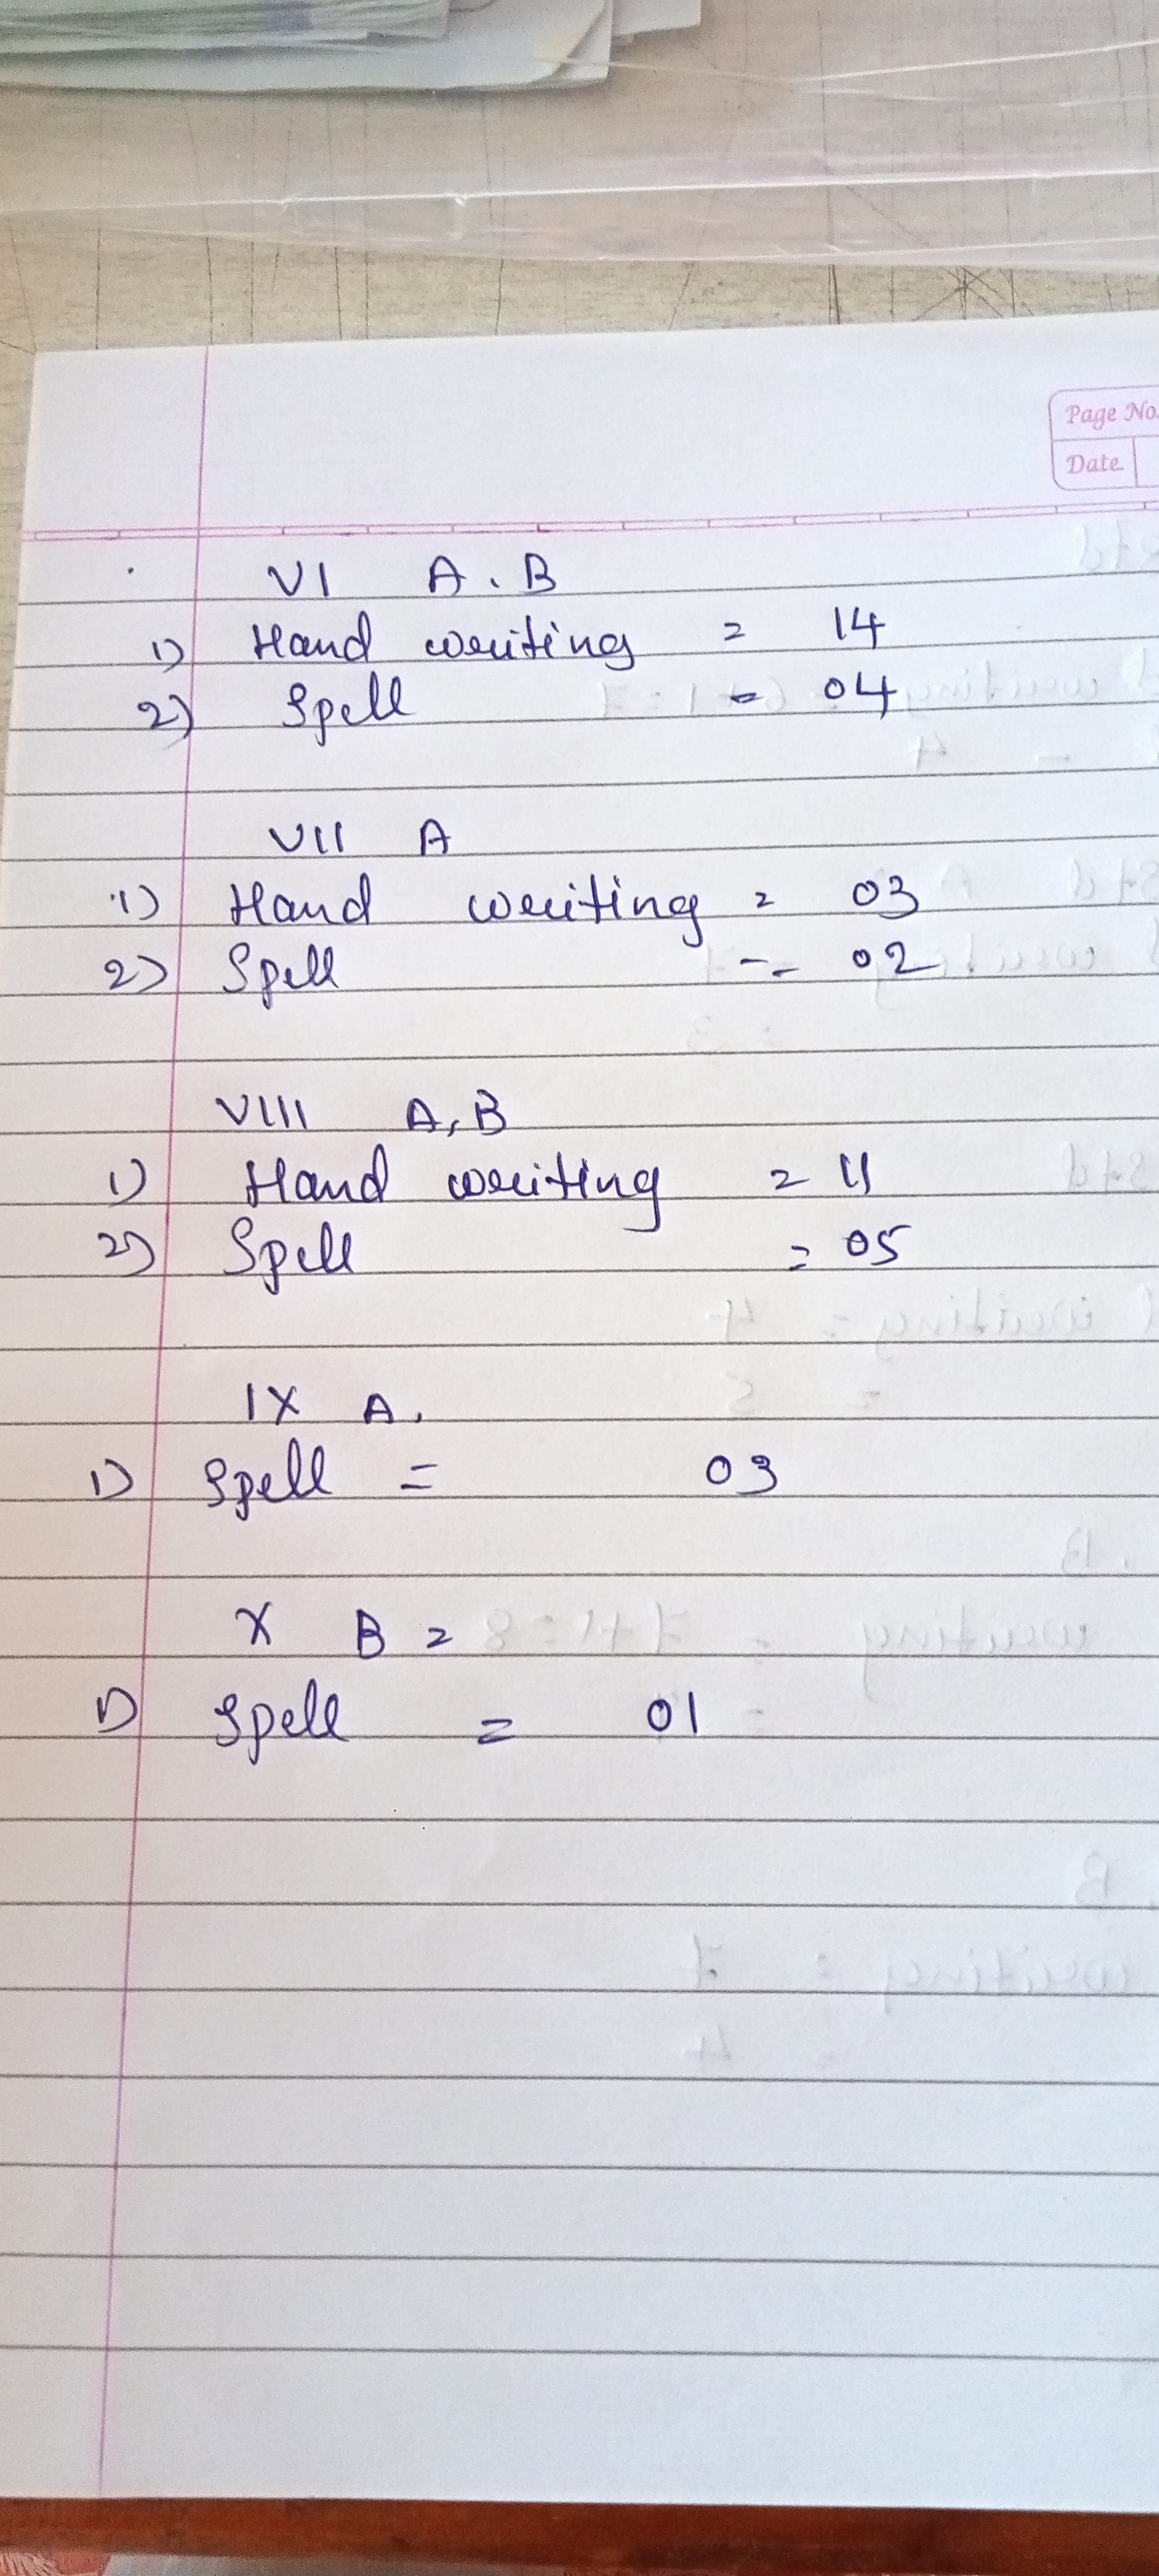 Page No.
Date
VI A. B
1) Hand writing = 14
2) Spell = 04
VII A
1) Hand writing = 03
2) Spell -- 02
VIII A, B
1) Hand writing = 11
2) Spell = 05
IX A.
1) Spell = 03
X B =
1) Spell = 01